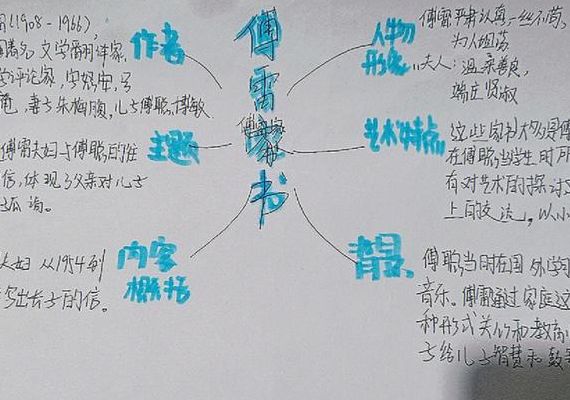 傅雷家书
作者
(1908-1966),
著名文学翻译家,
学评论家,字怒安,号
妻子朱梅馥,儿子傅聪,傅敏
主题
傅雷夫妇与傅聪的
信,体现了父亲对儿子
内容
概括
夫妇从1954到
写出长子的信。
人物
形象
傅雷严肃认真一丝不苟,
为人坦荡
夫人:温柔善良,
端庄贤淑
艺术特点
这些家书大多是傅
在傅聪当学生时所
有对艺术的探讨
上的交流。以小
背景
傅聪当时在国外学习
音乐。傅雷通过家庭这
种形式关心和教育
予给儿子智慧和鼓